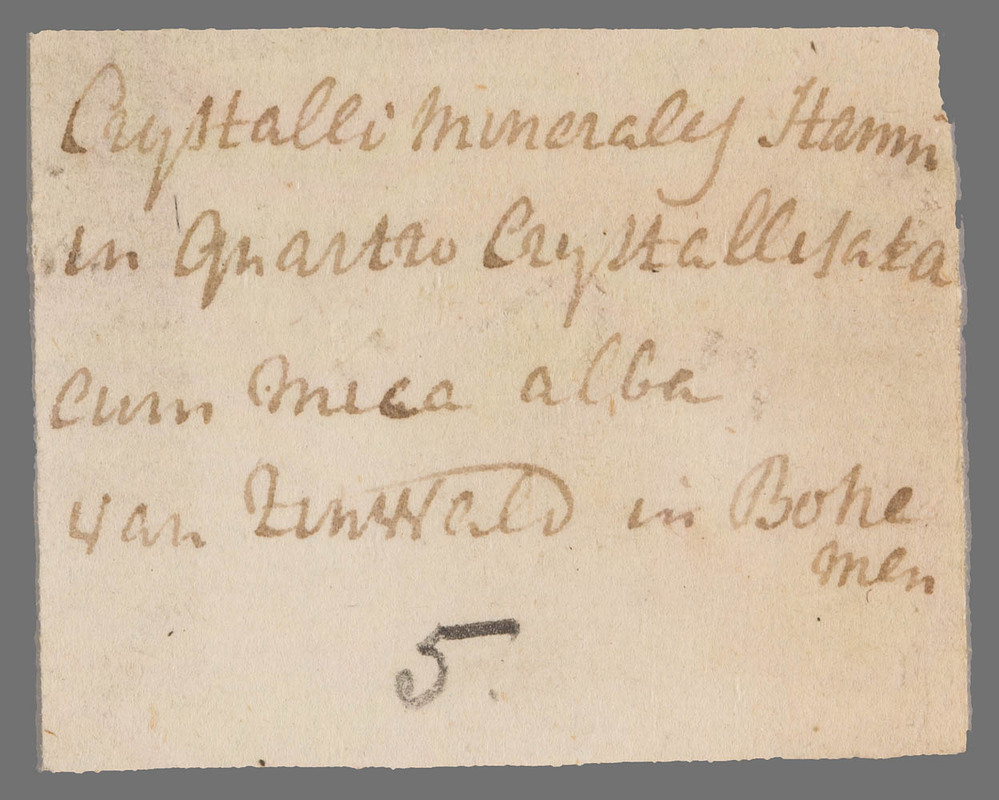 Crystalli Minerales Stanni
in Quartzo Crystallisata
cum mica alba
van Zinwald in Bohe
men
5.